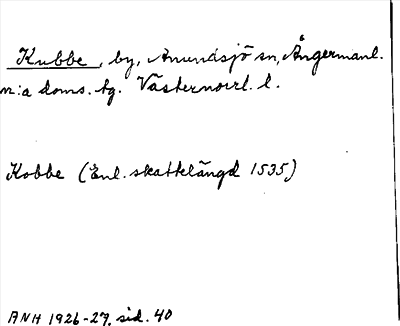 Kubbe, by, Anundsjö sn, Ångermanl.
n:a doms. tg. Västernorrl. l.
Kobbe (Enl. skattelängd 1535)
ANH 1926-27, sid. 40